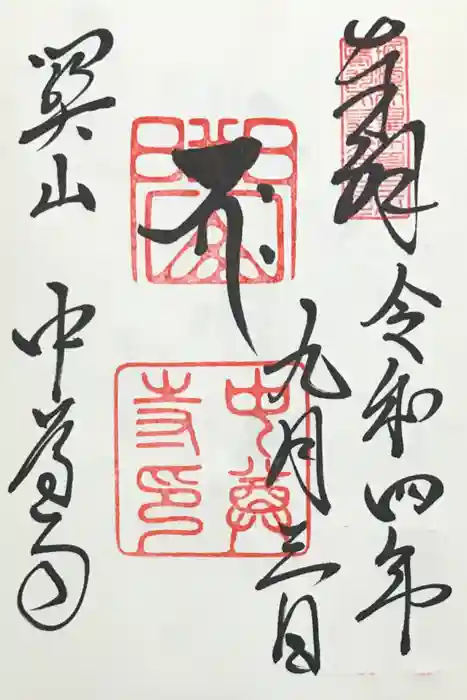 奉拝 令和四年
九月三日
関山 中尊寺
中尊
寺印